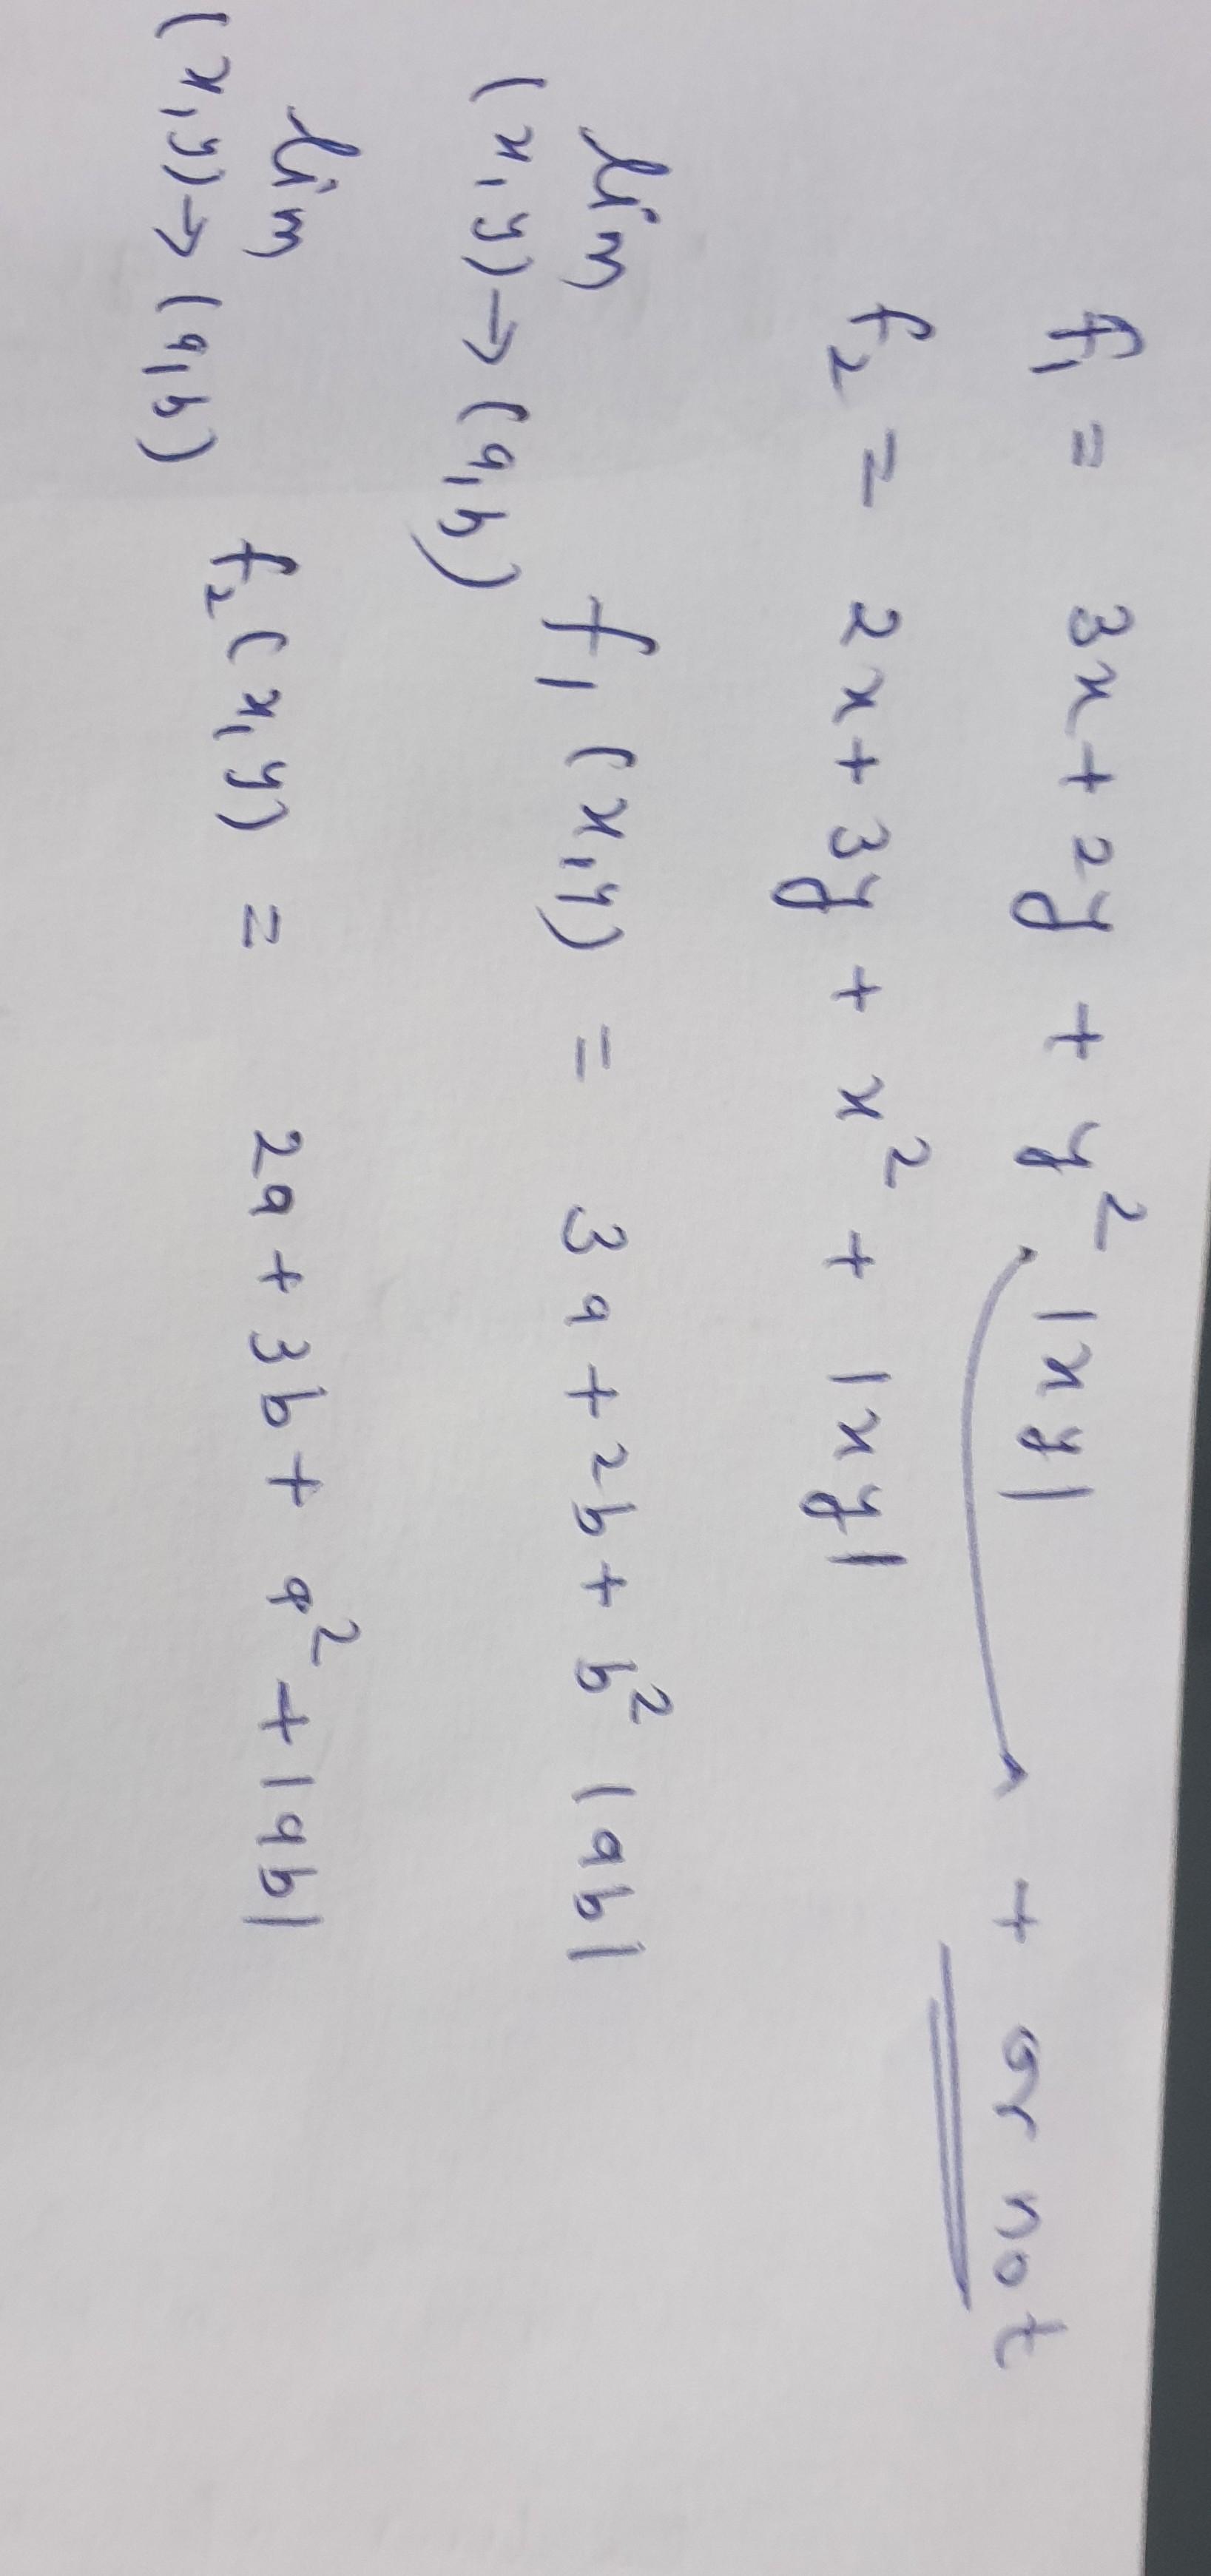 f₁ = 3x + 2y + y² |xy| + or not
f₂ = 2x + 3y + x² + |xy|
lim (x,y)→(a,b) f₁(x,y) = 3a + 2b + b² |ab|
lim (x,y)→(a,b) f₂(x,y) = 2a + 3b + a² + |ab|